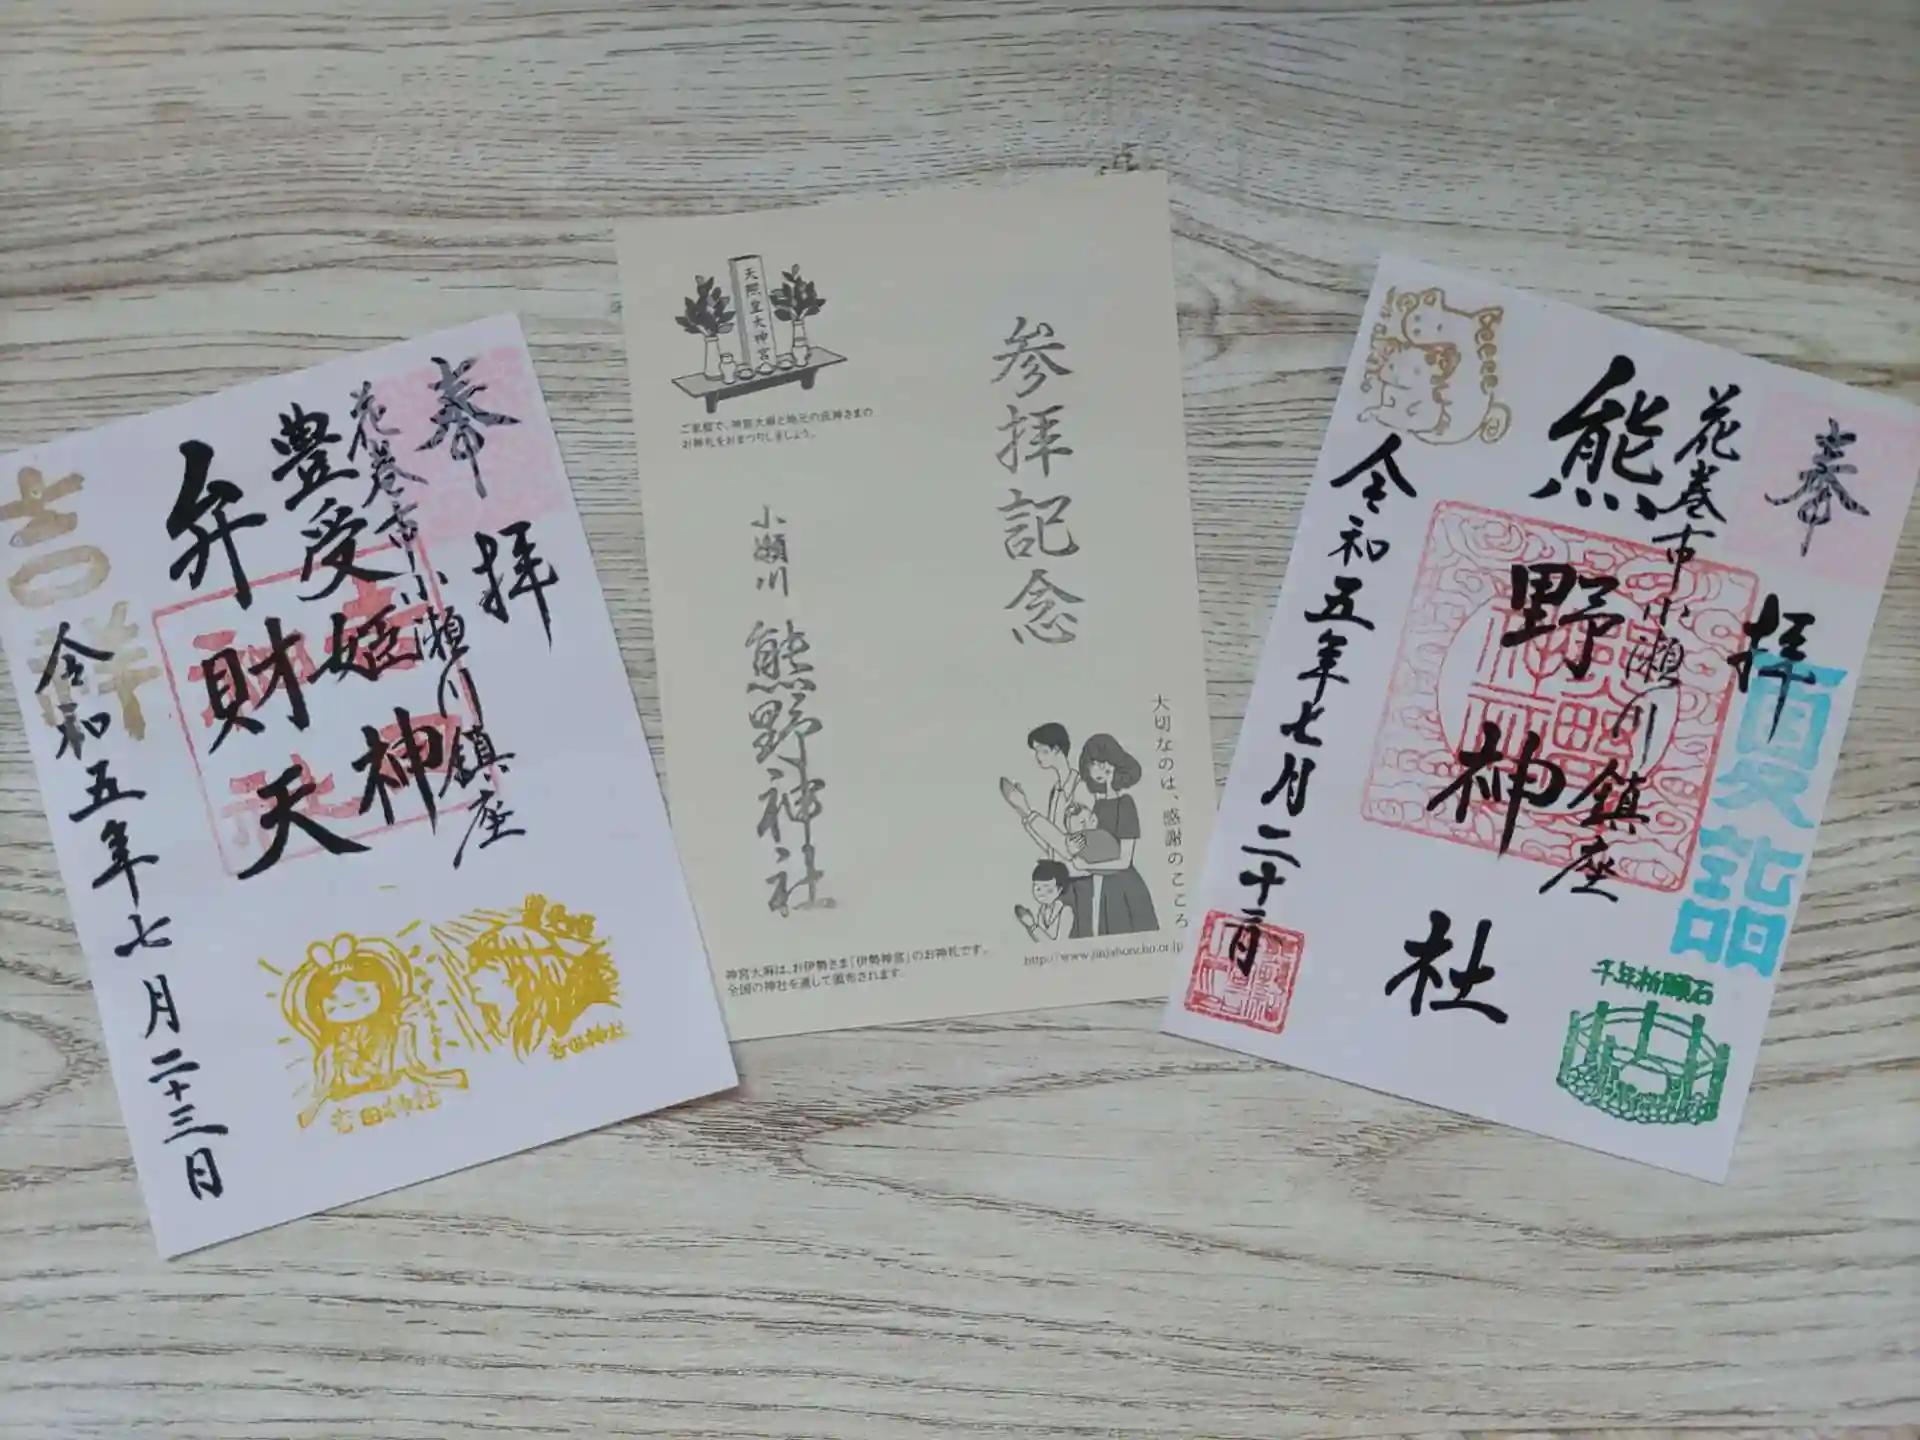 奉拝
花巻市小瀬川鎮座
豊受姫神
弁財天
吉祥
令和五年七月二十三日
吉田神社
吉田神社
天照皇大神宮
ご家庭で、神宮大麻と地元の氏神さまの
お神札をおまつりしましょう。
参拝記念
小瀬川 熊野神社
大切なのは、感謝のこころ
神宮大麻は、お伊勢さま「伊勢神宮」のお神札です。
全国の神社を通して頒布されます。
http://www.jinjahoncho.or.jp
奉拝
夏詣
花巻市小瀬川鎮座
熊野神社
令和五年七月二十三日
千年祈願石